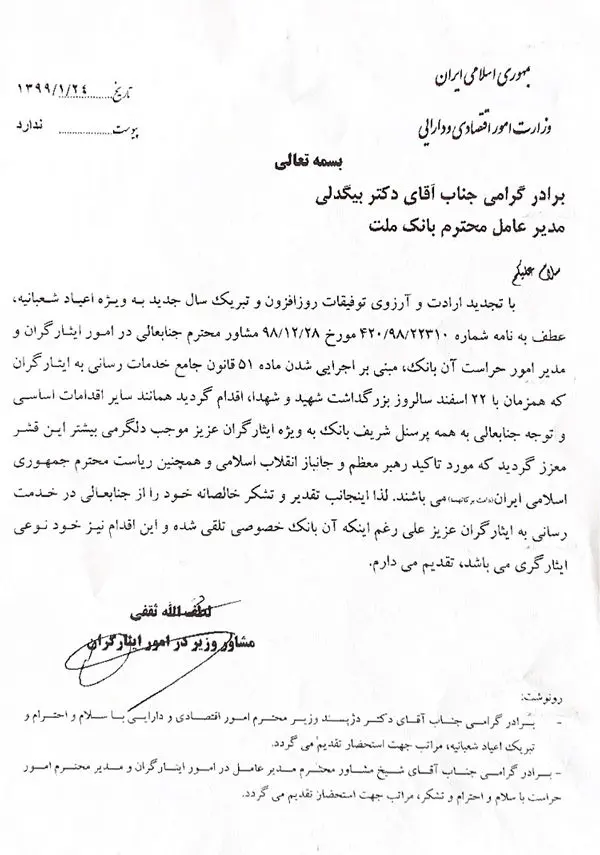 جمهوری اسلامی ایران
وزارت امور اقتصادی و دارایی
تاریخ ۱۳۹۹/۱/۲۴
پیوست ندارد
بسمه تعالی
برادر گرامی جناب آقای دکتر بیگدلی
مدیر عامل محترم بانک ملت
سلام علیکم
با تجدید ارادت و آرزوی توفیقات روزافزون و تبریک سال جدید به ویژه اعیاد شعبانیه،
عطف به نامه شماره ۴۲۰/۹۸/۲۲۳۱۰ مورخ ۹۸/۱۲/۲۸ مشاور محترم جنابعالی در امور ایثارگران و
مدیر امور حراست آن بانک، مبنی بر اجرایی شدن ماده ۵۱ قانون جامع خدمات رسانی به ایثارگران
که همزمان با ۲۲ اسفند سالروز بزرگداشت شهید و شهدا، اقدام گردید همانند سایر اقدامات اساسی
و توجه جنابعالی به همه پرسنل شریف بانک به ویژه ایثارگران عزیز موجب دلگرمی بیشتر این قشر
معزز گردید که مورد تاکید رهبر معظم و جانباز انقلاب اسلامی و همچنین ریاست محترم جمهوری
اسلامی ایران (دامت برکاتهما) می باشند. لذا اینجانب تقدیر و تشکر خالصانه خود را از جنابعالی در خدمت
رسانی به ایثارگران عزیز علی رغم اینکه آن بانک خصوصی تلقی شده و این اقدام نیز خود نوعی
ایثارگری می باشد، تقدیم می دارم.
لطف الله ثقفی
مشاور وزیر در امور ایثارگران
رونوشت:
- برادر گرامی جناب آقای دکتر دژپسند وزیر محترم امور اقتصادی و دارایی با سلام و احترام و
تبریک اعیاد شعبانیه، مراتب جهت استحضار تقدیم می گردد.
- برادر گرامی جناب آقای شیخ مشاور محترم مدیر عامل در امور ایثارگران و مدیر محترم امور
حراست با سلام و احترام و تشکر، مراتب جهت استحضار تقدیم می گردد.